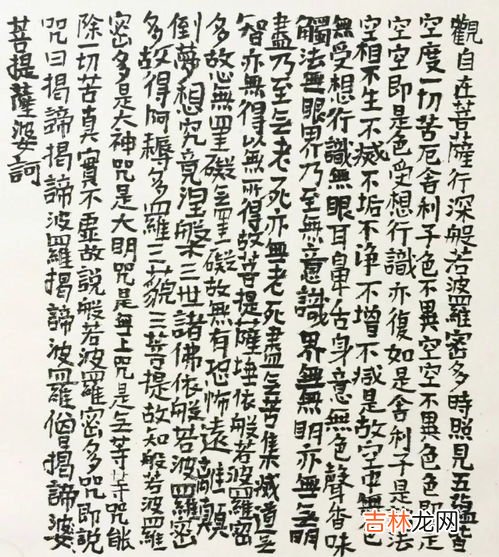 觀自在菩薩行深般若波羅密多時照見五蘊皆
空度一切苦厄舍利子色不異空空不異色色即是
空空即是色受想行識亦復如是舍利子是諸法
空相不生不滅不垢不净不增不減是故空中無色
無受想行識無眼耳鼻舌身意無色聲香味
觸法無眼界乃至無意識界無無明亦無无明
盡乃至无老死亦無老死盡无苦集滅道无
智亦無得以無所得故菩提薩埵依般若波羅密
多故心無罣礙无罣礙故無有恐怖遠離顛
倒夢想究竟涅槃三世諸佛依般若波羅密
多故得阿耨多羅三藐三菩提故知般若波羅
密多是大神咒是大明咒是無上咒是无等等咒能
除一切苦真實不虛故説般若波羅密多咒即説
咒曰揭諦揭諦波羅揭諦波羅僧揭諦婆
菩提薩婆訶
吉林龙网